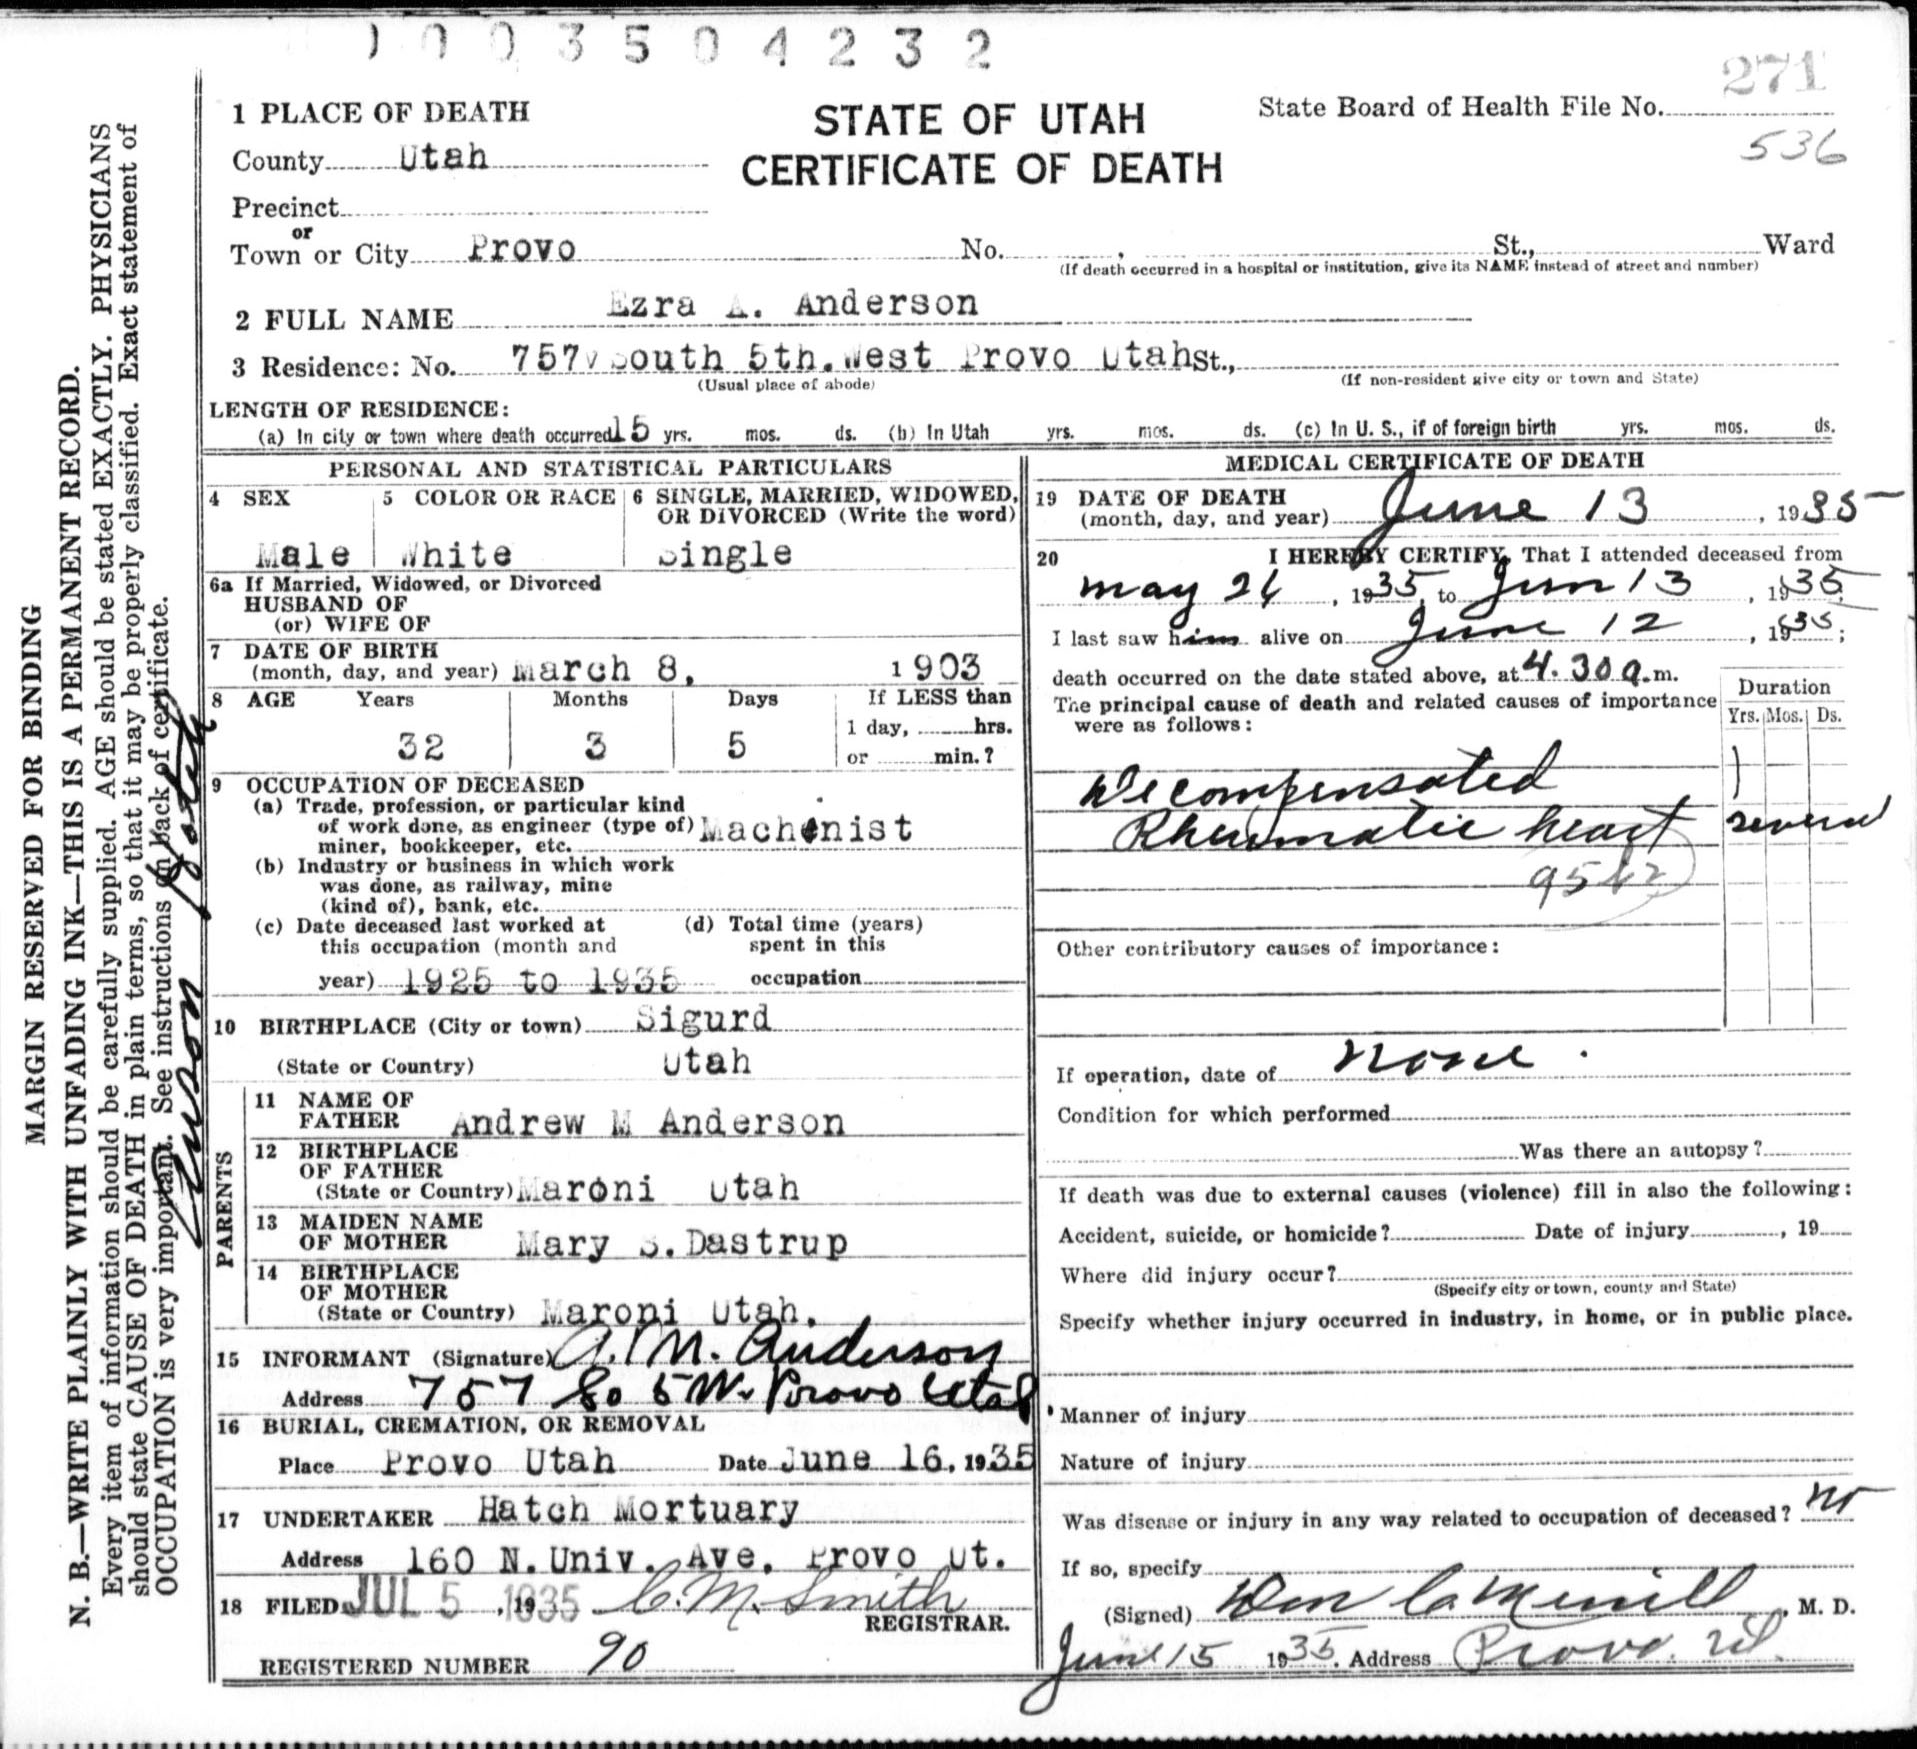 1003504232
271
536
1 PLACE OF DEATH
STATE OF UTAH
CERTIFICATE OF DEATH
State Board of Health File No.
County Utah
Precinct
or
Town or City Provo No. St., Ward
(If death occurred in a hospital or institution, give its NAME instead of street and number)
2 FULL NAME Ezra A. Anderson
3 Residence: No. 757 South 5th. West Provo Utah St.,
(Usual place of abode) (If non-resident give city or town and State)
LENGTH OF RESIDENCE:
(a) In city or town where death occurred 15 yrs. mos. ds. (b) In Utah yrs. mos. ds. (c) In U. S., if of foreign birth yrs. mos. ds.
PERSONAL AND STATISTICAL PARTICULARS
4 SEX 5 COLOR OR RACE 6 SINGLE, MARRIED, WIDOWED,
OR DIVORCED (Write the word)
Male White Single
6a If Married, Widowed, or Divorced
HUSBAND OF
(or) WIFE OF
7 DATE OF BIRTH
(month, day, and year) March 8, 1903
8 AGE Years Months Days If LESS than
1 day, hrs.
32 3 5 or min.?
9 OCCUPATION OF DECEASED
(a) Trade, profession, or particular kind
of work done, as engineer (type of) Machinist
miner, bookkeeper, etc.
(b) Industry or business in which work
was done, as railway, mine
(kind of), bank, etc.
(c) Date deceased last worked at (d) Total time (years)
this occupation (month and spent in this
year) 1925 to 1935 occupation
10 BIRTHPLACE (City or town) Sigurd
(State or Country) Utah
PARENTS
11 NAME OF
FATHER Andrew M Anderson
12 BIRTHPLACE
OF FATHER
(State or Country) Maroni Utah
13 MAIDEN NAME
OF MOTHER Mary S. Dastrup
14 BIRTHPLACE
OF MOTHER
(State or Country) Maroni Utah.
15 INFORMANT (Signature) A. M. Anderson
Address 757 So 5 W. Provo Utah
16 BURIAL, CREMATION, OR REMOVAL
Place Provo Utah Date June 16, 1935
17 UNDERTAKER Hatch Mortuary
Address 160 N. Univ. Ave. Provo Ut.
18 FILED JUL 5 1935, 19 C. M. Smith
REGISTRAR.
REGISTERED NUMBER 90
MEDICAL CERTIFICATE OF DEATH
19 DATE OF DEATH
(month, day, and year) June 13, 1935
20 I HEREBY CERTIFY, That I attended deceased from
May 24, 1935, to Jun 13, 1935;
I last saw him alive on June 12, 1935;
death occurred on the date stated above, at 4.30 a.m.
The principal cause of death and related causes of importance
were as follows:
Duration
Yrs. Mos. Ds.
Decompensated
Rheumatic heart several
Other contributory causes of importance:
If operation, date of None.
Condition for which performed
Was there an autopsy?
If death was due to external causes (violence) fill in also the following:
Accident, suicide, or homicide? Date of injury, 19
Where did injury occur?
(Specify city or town, county and State)
Specify whether injury occurred in industry, in home, or in public place.
Manner of injury
Nature of injury
Was disease or injury in any way related to occupation of deceased? no
If so, specify
(Signed) Wm C. Merrill, M. D.
June 15 1935. Address Provo. Ut.
MARGIN RESERVED FOR BINDING
N. B.—WRITE PLAINLY WITH UNFADING INK—THIS IS A PERMANENT RECORD.
Every item of information should be carefully supplied. AGE should be stated EXACTLY. PHYSICIANS
should state CAUSE OF DEATH in plain terms, so that it may be properly classified. Exact statement of
OCCUPATION is very important. See instructions on back of certificate.